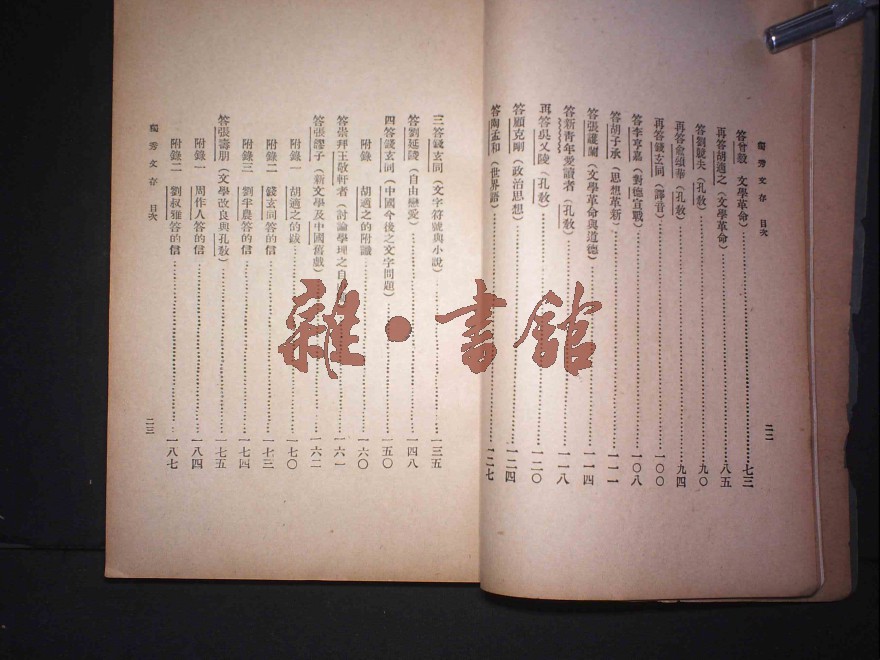 獨秀文存　目次
二二
答曾毅（文學革命）……七三
再答胡適之（文學革命）……八五
答劉競夫（孔教）……九〇
再答俞頌華（孔教）……九四
再答錢玄同（譯音）……一〇〇
答李亨嘉（對德宣戰）……一〇八
答胡子承（思想革新）……一一一
答張護蘭（文學革命與道德）……一一四
答新青年愛讀者（孔教）……一一八
再答吳又陵（孔教）……一二〇
答顧克剛（政治思想）……一二四
答陶孟和（世界語）……一二七
三答錢玄同（文字符號與小說）……一三五
答劉延陵（自由戀愛）……一四八
四答錢玄同（中國今後之文字問題）……一五〇
附錄　胡適之的附識……一六〇
答崇拜王敬軒者（討論學理之自……一六一
答張繆子（新文學及中國舊戲）……一六二
附錄一　胡適之的跋……一七〇
附錄二　錢玄同答的信……一七三
附錄三　劉半農答的信……一七四
答張壽朋（文學改良與孔教）……一七五
附錄一　周作人答的信……一八四
附錄二　劉叔雅答的信……一八七
獨秀文存　目次
二三
雜·書館